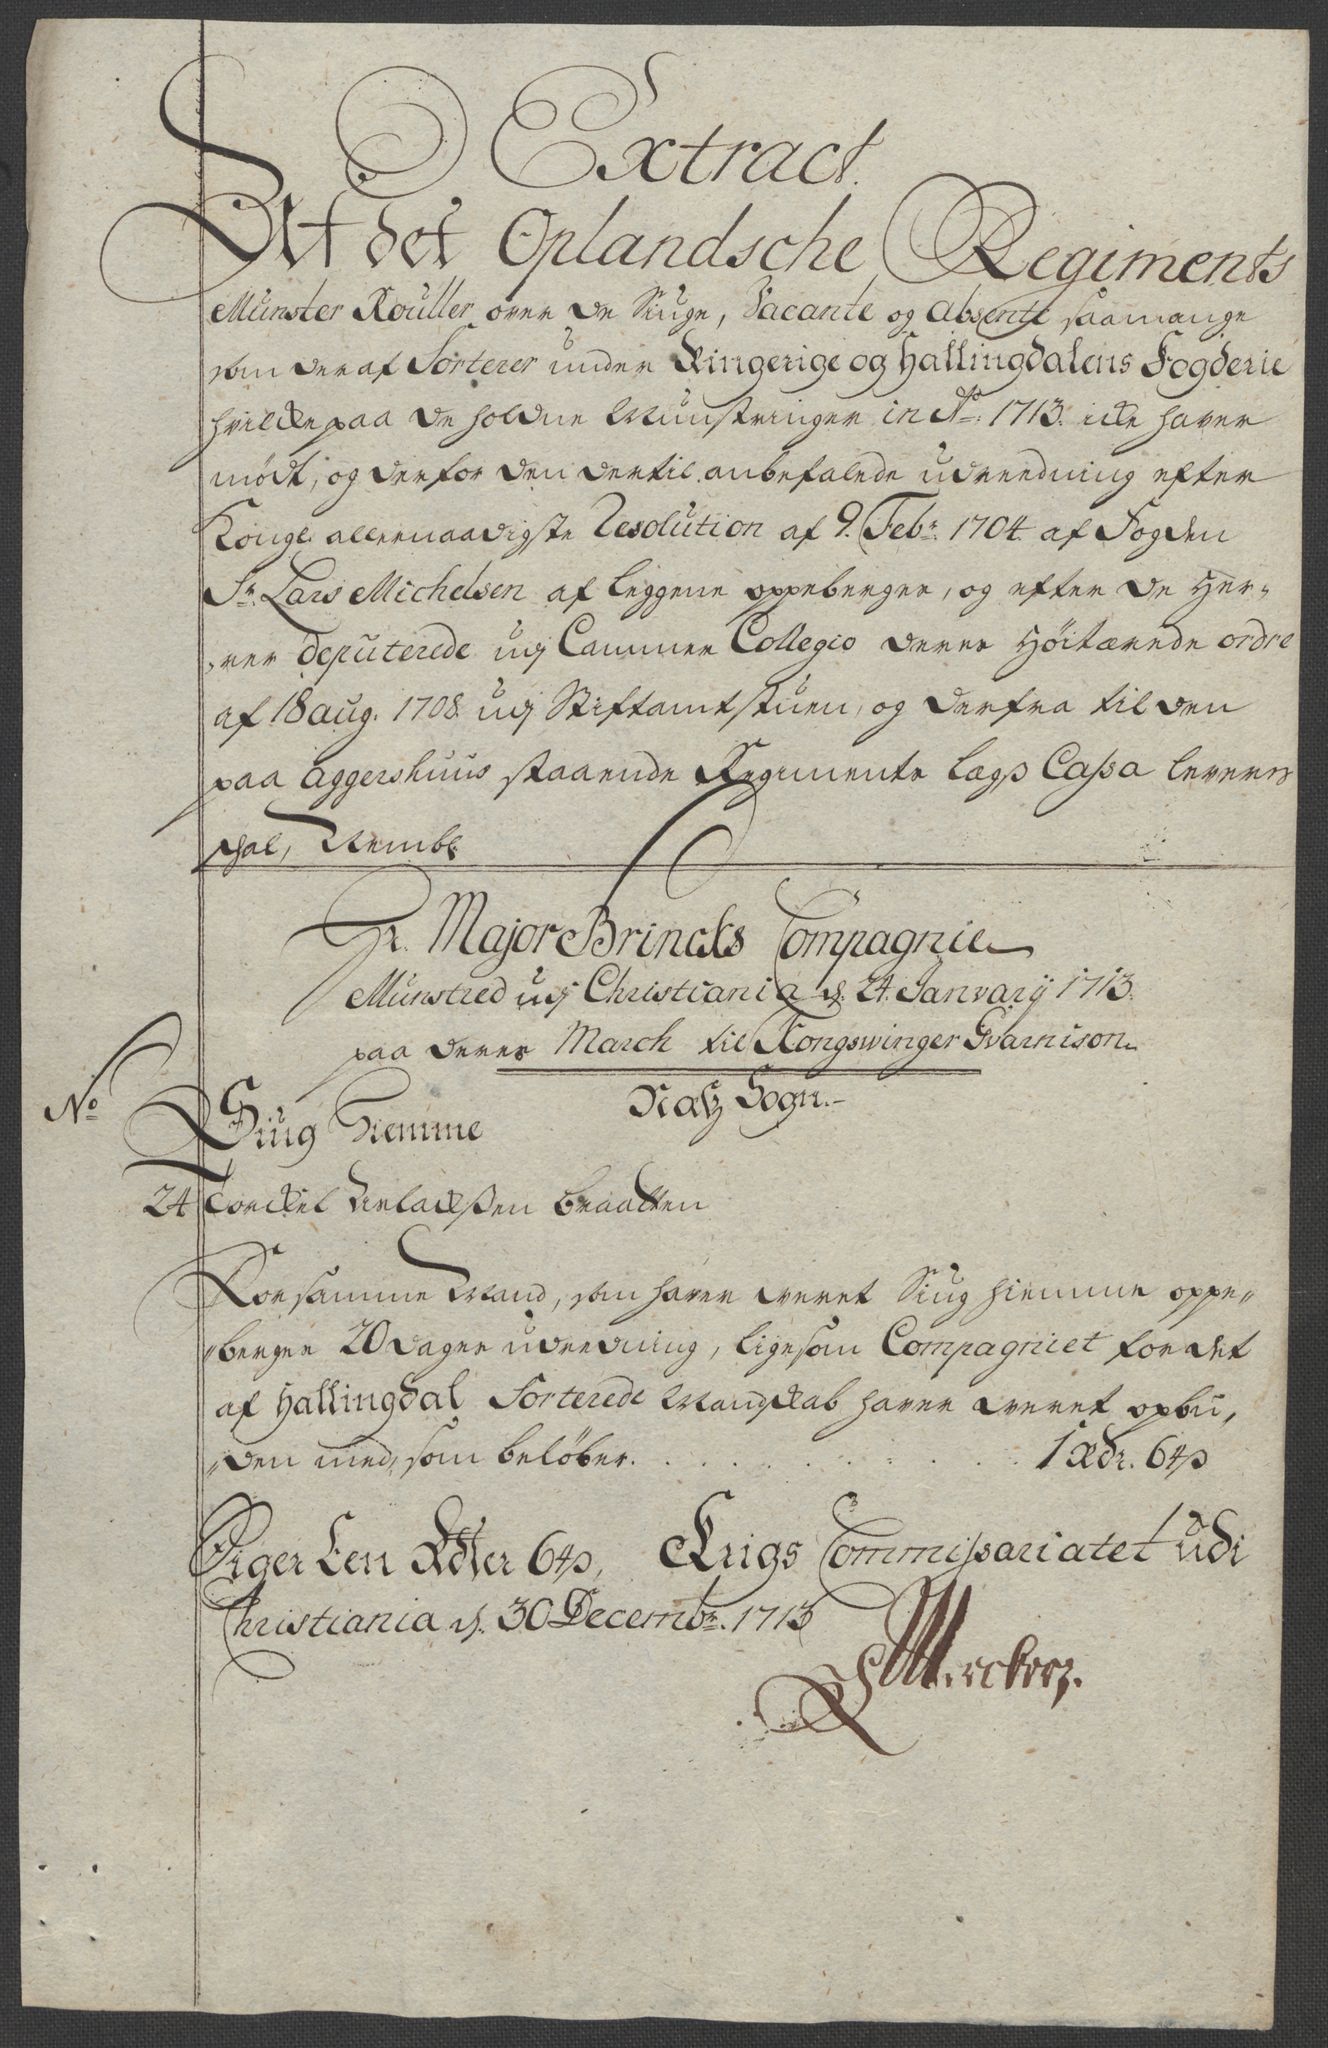 Extract
Af det Oplandsche Regiments
Munster Rouller over de Siuge, Vacante og absente saamange
som deraf Sorterer under Ringerige og Hallingdalens Fogderie
hvilcke paa de holdne Munstringer in Ao: 1713. icke haver
mødt, og derfor den dertil anbefalede udreedning efter
Kongl: allernaadigste Resolution af 9. Febr: 1704 af Fogden
Sr. Lars Michelsen af leggene oppeberger, og efter de Her-
rer deputerede udj Cammer Collegio deres Høitærede ordre
af 18 aug. 1708 udj Stiftamtstuen, og derfra til den
paa Aggershuus staaende Regimente lægs Cassa leveris
skal, Nembl.
Hr. Major Brincks Compagnie
Munstred udj Christiania d. 24. Janvary 1713.
paa deres March til Kongswinger Gvarnison.
Næss Sogn.
No
Siug Hiemme
24 Torckel Braatten
For samme Mand, som haver været Siug hiemme oppe-
berger 20 dager udredning, ligesom Compagniet for det
af Hallingdal Sorterede Mandskab haver været opbu-
den med, som beløber. . . . . . . . 1 Rdr. 64 s
Siger Een Rdler 64 s, Krigs Commissariatet udi
Christiania d. 30 Decembr. 1713